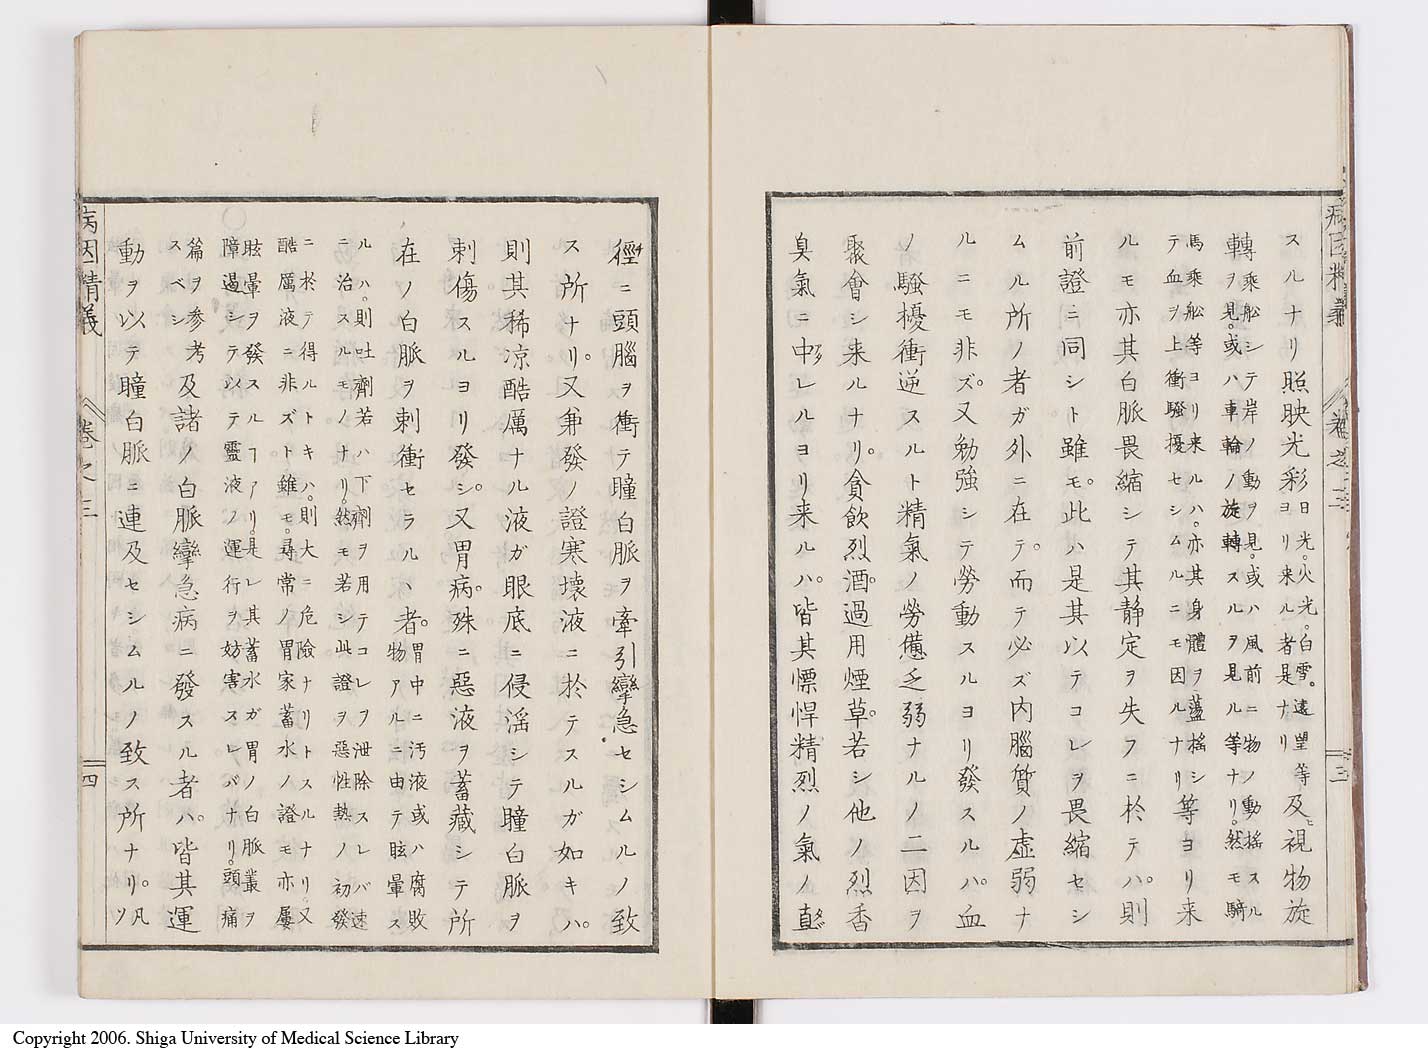 病因精義 卷之三 三
スルナリ照映光彩日光。火光。白雪。遠望等
ヨリ来ル者是ナリ及ヒ視物旋
轉乘船シテ岸ノ動ヲ見。或ハ風前ニ物ノ動搖スル
ヲ見。或ハ車輪ノ旋轉スルヲ見ル等ナリ。然モ騎
馬乘船等ヨリ来ルハ。亦其身體ヲ蕩搖シ
テ血ヲ上衝騷擾セシムルニモ因ルナリ等ヨリ来
ルモ亦其白脈畏縮シテ其静定ヲ失フニ於テハ。則
前證ニ同シト雖モ。此ハ是其以テコレヲ畏縮セシ
ムル所ノ者ガ外ニ在テ。而テ必ズ内腦質ノ虚弱ナ
ルニモ非ズ。又勉強シテ勞動スルヨリ發スルハ。血
ノ騷擾衝逆スルト精氣ノ勞憊乏弱ナルノ二因ヲ
聚會シ来ルナリ。貪飲烈酒。過用煙草。若シ他ノ烈香
臭氣ニ中ルヨリ来ルハ。皆其慓悍精烈ノ氣ノ直
徑ニ頭腦ヲ衝テ瞳白脈ヲ牽引攣急セシムルノ致
ス所ナリ。又兼發ノ證寒壊液ニ於テスルガ如キハ。
則其稀凉酷厲ナル液ガ眼底ニ侵淫シテ瞳白脈ヲ
刺傷スルヨリ發シ。又胃病。殊ニ惡液ヲ蓄藏シテ所
在ノ白脈ヲ刺衝セラルヽ者。胃中ニ汚液或ハ腐敗
物アルニ由テ眩暈ス
ルハ。則吐劑若ハ下劑ヲ用テコレヲ泄除スレバ速
ニ治スルモノナリ。然モ若シ此證ヲ惡性熱ノ初發
ニ於テ得ルトキハ。則大ニ危險ナリトスルナリ。又
酷厲液ニ非ズト雖モ。尋常ノ胃家蓄水ノ證モ亦屢
眩暈ヲ發スルヿアリ。是レ其蓄水ガ胃ノ白脈叢ヲ
障遏シテ以テ靈液ノ運行ヲ妨害スレバナリ。頭痛
篇ヲ參考
スベシ及諸ノ白脈攣急病ニ發スル者ハ。皆其運
動ヲ以テ瞳白脈ニ連及セシムルノ致ス所ナリ。凡ソ
病因精義 卷之三 四
Copyright 2006. Shiga University of Medical Science Library